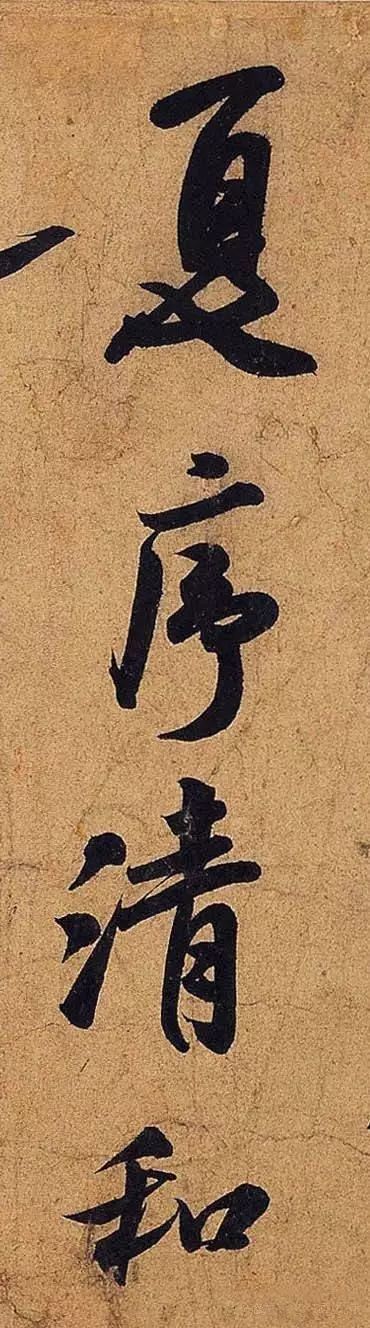 夏序清和